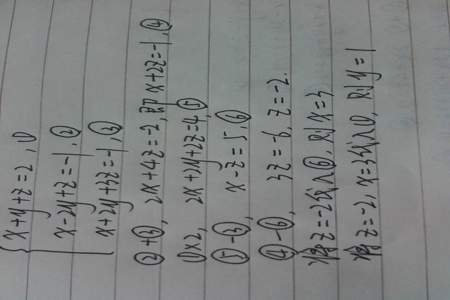 x+y+z=2,①
x-2y+z=-1,②
x+2y+3z=-1,③
②+③,2x+4z=-2,即x+2z=-1,④
①×2,2x+2y+2z=4,⑤
⑤-③,x-z=5,⑥
④-⑥,3z=-6,z=-2.
将z=-2代入⑥,则x=3
将z=-2,x=3代入①,则y=1